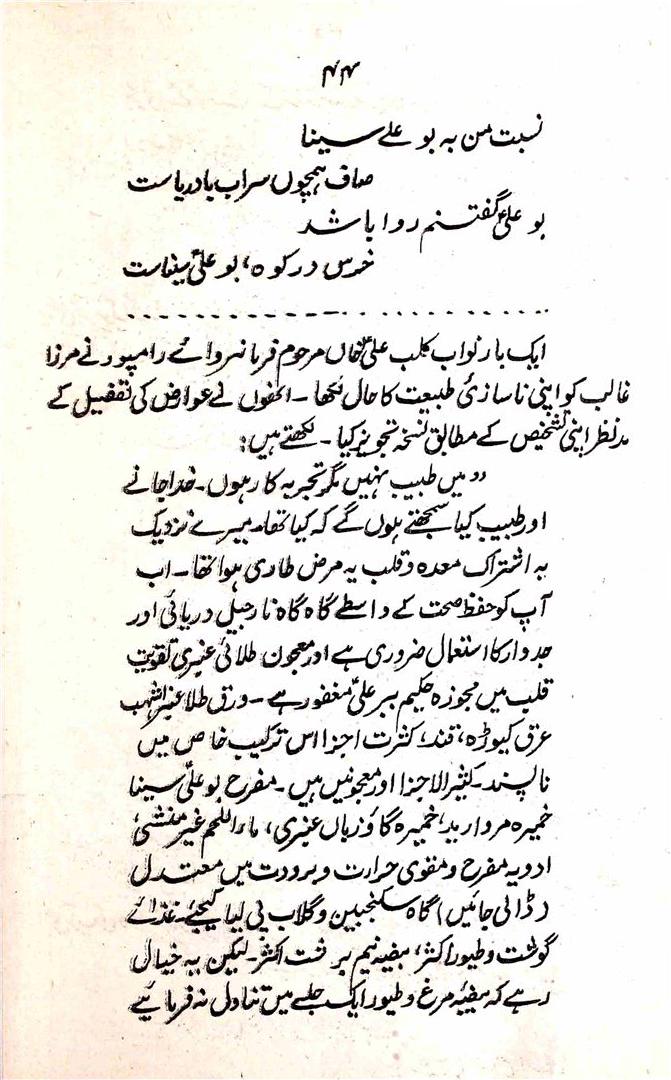 ۴۴
نسبت من بہ بو علی سینا
صاف ہمچوں سراب بادریاست
بو علیؑ گفتنم روا باشد
خرس در کوہ، بو علیؑ سیناست
ایک بار نواب کلب علیؑ خاں مرحوم فرمانروائے رامپور نے مرزا
غالب کو اپنی ناسازیٔ طبیعت کا حال لکھا ۔ انھوں نے عوارض کی تفصیل کے
مدنظر اپنی تشخیص کے مطابق نسخہ تجویز کیا ۔ لکھتے ہیں:
”میں طبیب نہیں مگر تجربہ کار ہوں ۔ خدا جانے
اور طبیب کیا سمجھتے ہوں گے کہ کیا تھا۔ میرے نزدیک
بہ اشتراک معدہ و قلب یہ مرض طاری ہوا تھا ۔ اب
آپ کو حفظ صحت کے واسطے گاہ گاہ نارجیل دریائی اور
جدوار کا استعمال ضروری ہے اور معجون طلائی عنبری تقویت
قلب میں مجوزہ حکیم ببر علیؑ مغفور ہے ۔ ورق طلا عنبر اشہب
عرق کیوڑہ، قند، کثرت اجزا اس ترکیب خاص میں
ناپسند ۔ کثیر الاجزا اور معجونیں ہیں ۔ مفرح بو علیؑ سینا
خمیرہ مروارید، خمیرہ گاؤ زباں عنبری، ماءاللحم غیر منشی،
ادویہ مفرح و مقوی حرارت و برودت میں معتدل
(ڈالی جائیں) گاہ سکنجبین و گلاب پی لیا کیجئے ۔ غذائے
گوشت و طیور اکثر، بیضہ نیم برشت اکثر ۔ لیکن یہ خیال
رہے کہ بیضۂ مرغ و طیور ایک جلسے میں تناول نہ فرمائیے